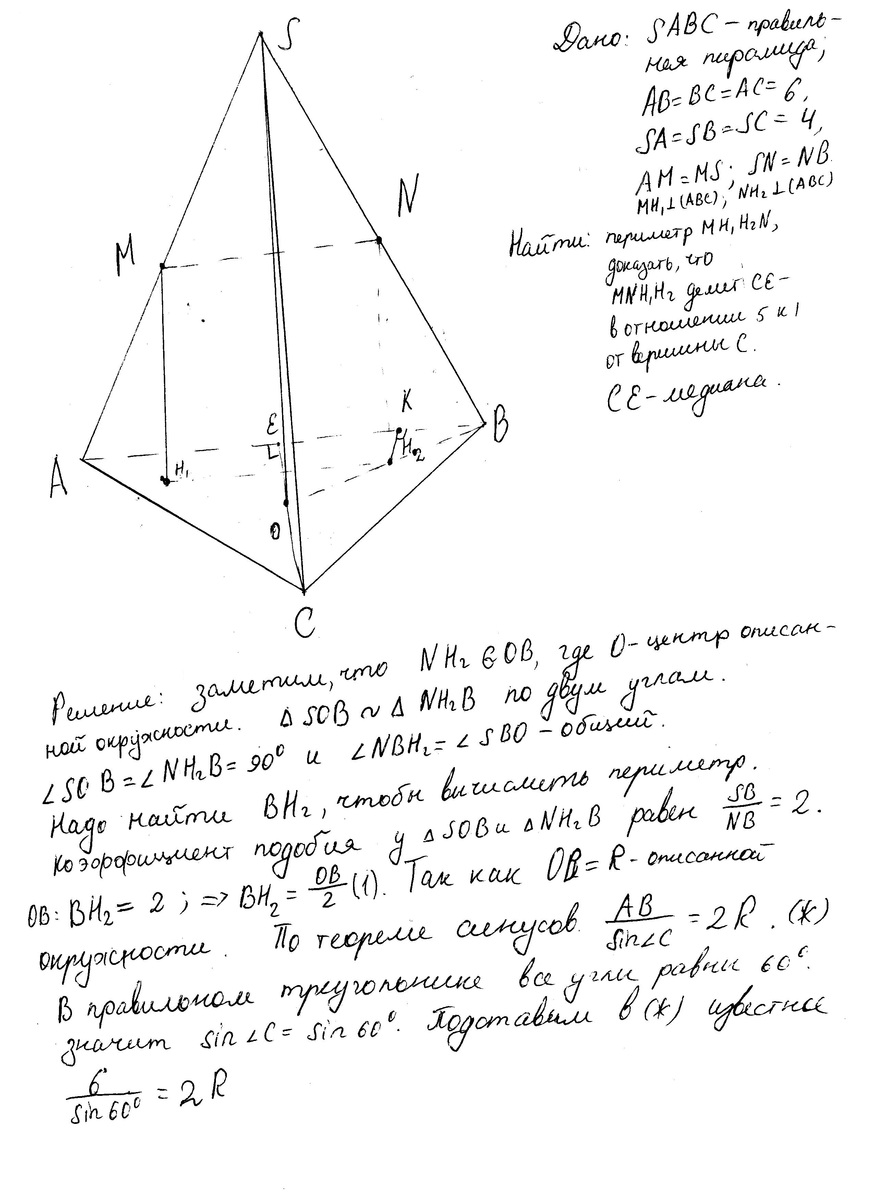 S
Дано: SABC – правиль-
ная пирамида;
AB=BC=AC=6,
SA=SB=SC=4,
AM=MS; SN=NB
MH₁⊥(ABC); NH₂⊥(ABC)
N
Найти: периметр MH₁H₂N,
M
доказать, что
MNH₁H₂ делит CE –
в отношении 5 к 1
от вершины C.
CE – медиана.
E
K
B
L
H₂
A
H₁
O
C
Решение: заметим, что NH₂ ∈ OB, где O – центр описан-
ной окружности. △SOB ~ △NH₂B по двум углам.
∠SOB=∠NH₂B=90° и ∠NBH₂=∠SBO – общий.
Надо найти BH₂, чтобы вычислить периметр.
Коэффициент подобия у △SOB и △NH₂B равен SB/NB = 2.
OB:BH₂=2; => BH₂=OB/2 (1). Так как OB=R – описанной
окружности. По теореме синусов AB/sin∠C = 2R. (*)
В правильном треугольнике все углы равны 60°.
значит sin∠C = sin 60°. Подставим в (*) известные
6/sin60° = 2R